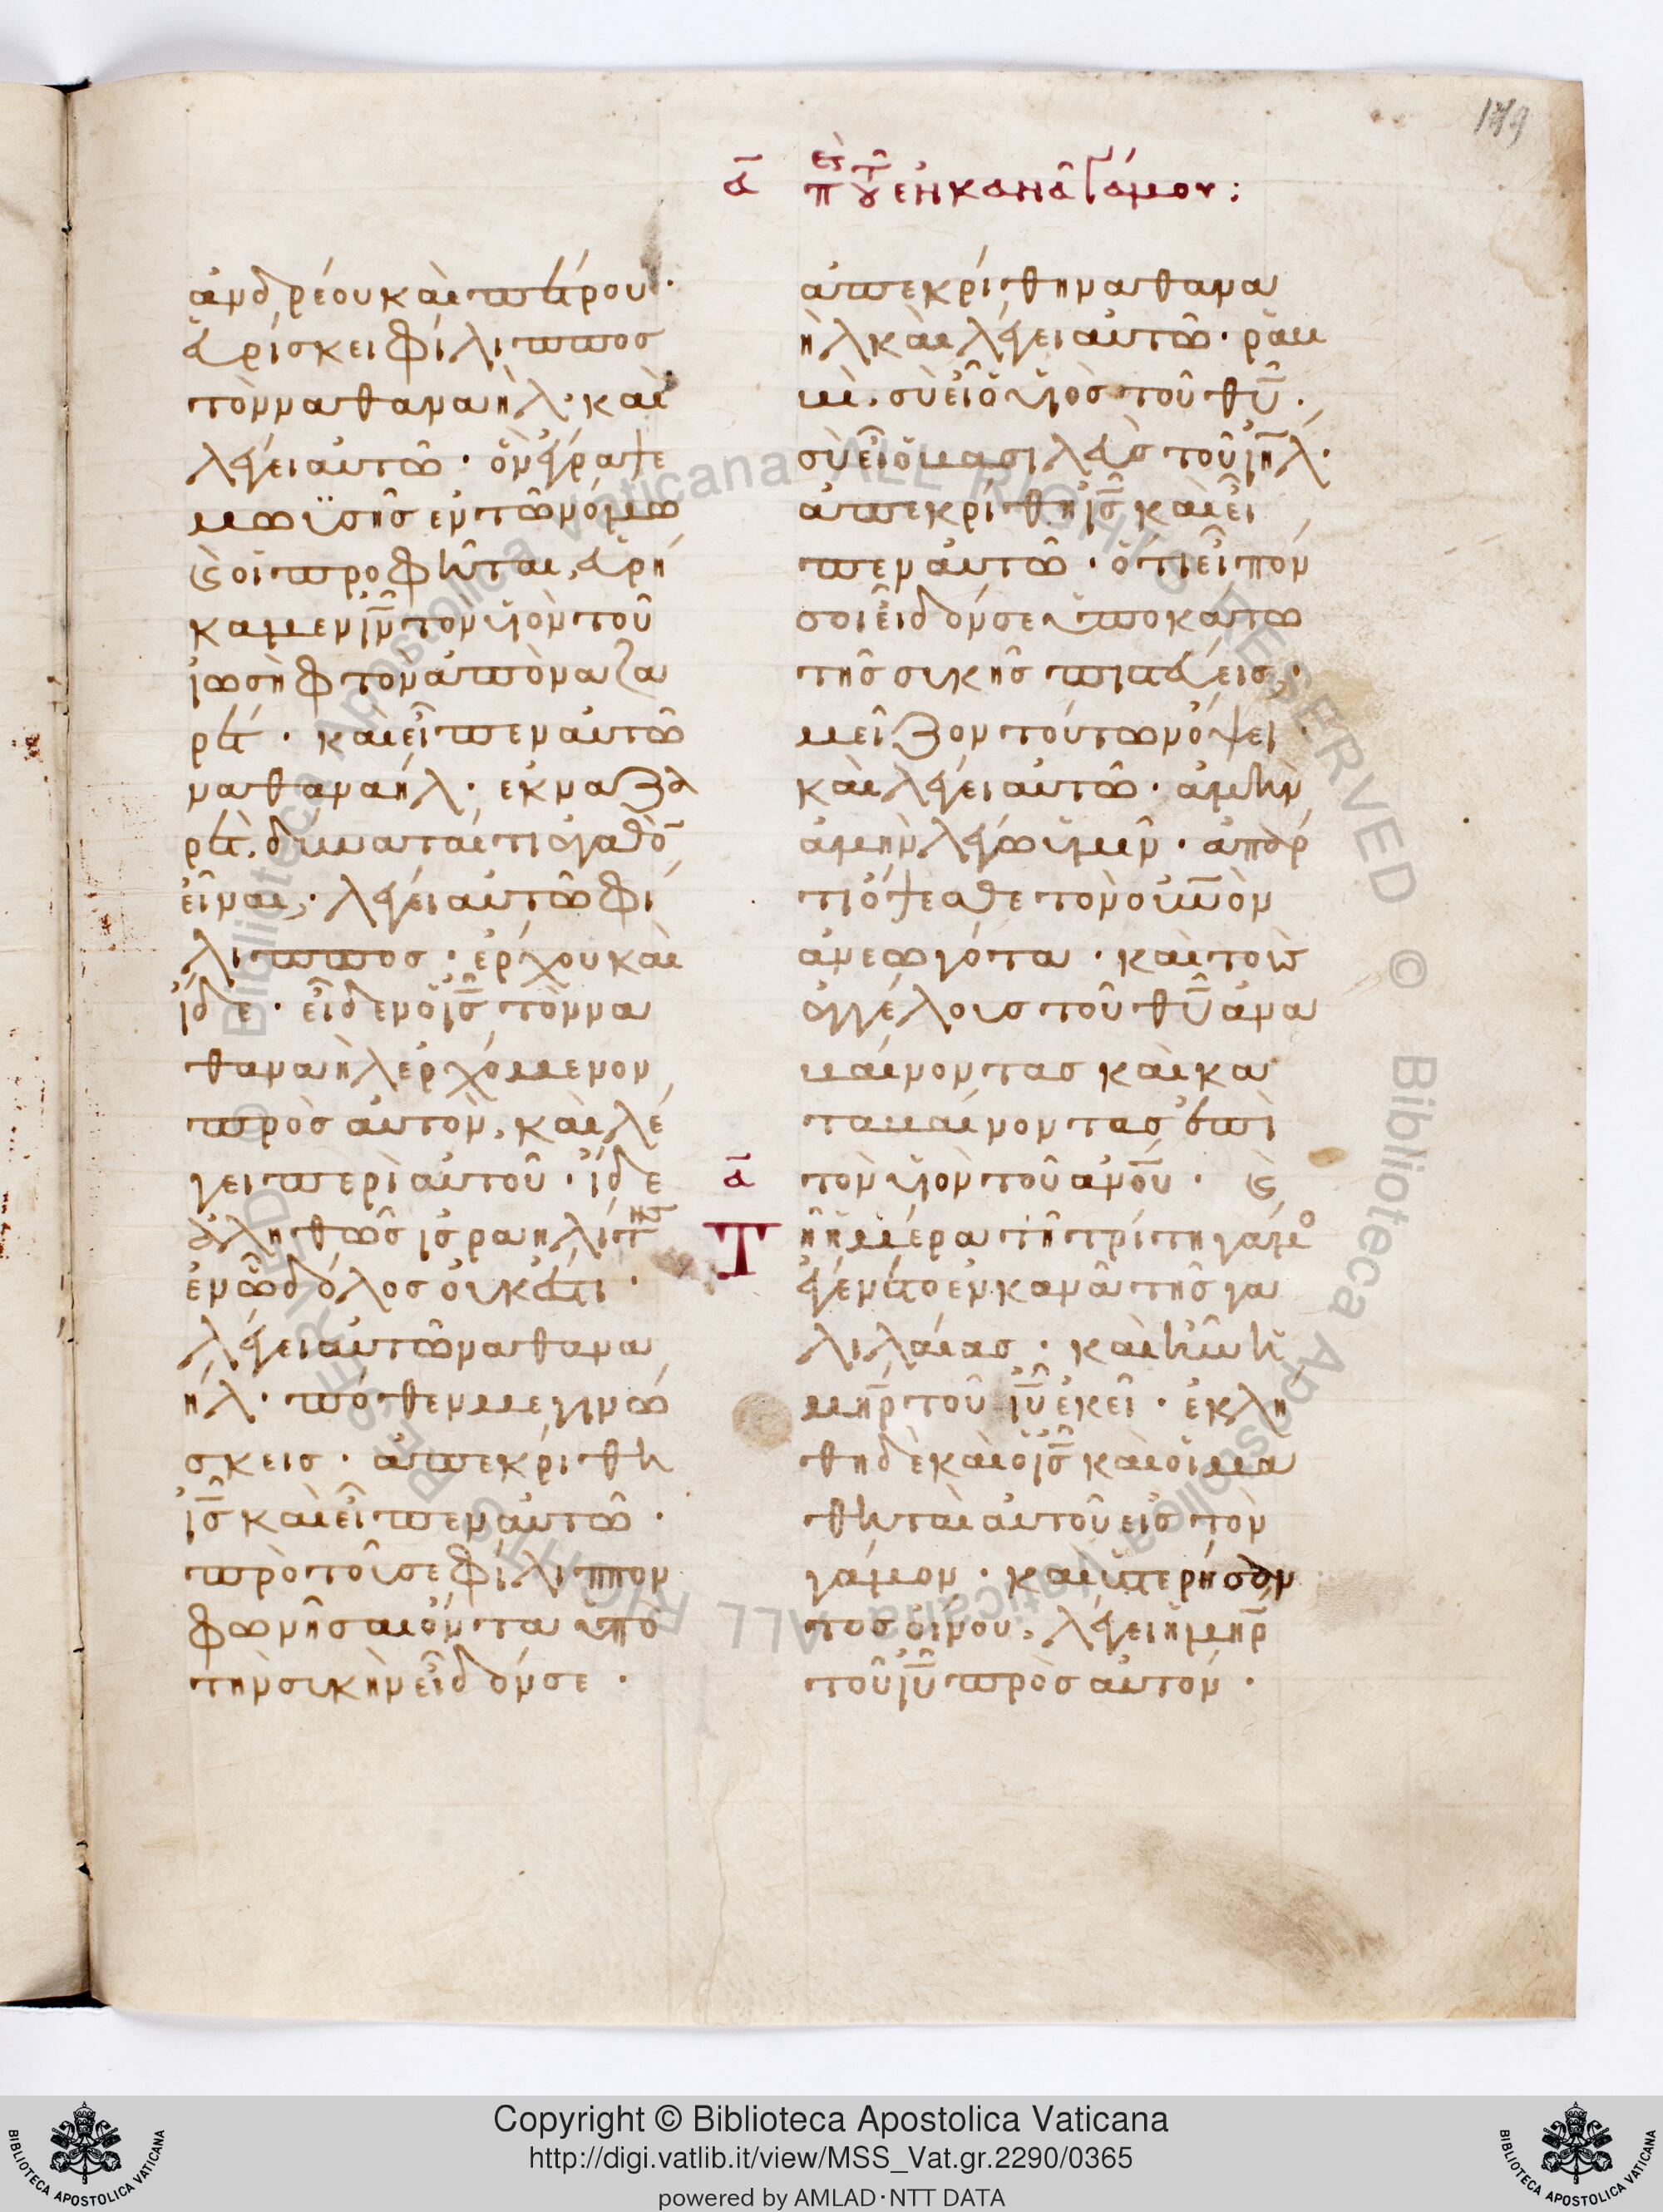 179
α̅ περὶ τοῦ ἐν Κανᾶ γάμου:
ἀνδρέου καὶ πέτρου·
εὑρίσκει φίλιππος
τὸν ναθαναὴλ· καὶ
λέγει αὐτῶ· ὃν ἔγραψε
μωϋσῆς ἐν τῶ νόμω
καὶ οἱ προφῆται, εὑρή
καμεν ι̅ν̅ τὸν υἱὸν τοῦ
ἰωσὴφ τὸν ἀπὸ ναζα
ρέτ· καὶ εἶπεν αὐτῶ
ναθαναήλ· ἐκ ναζα
ρὲτ δύναταί τι ἀγαθὸ̅
εἶναι· λέγει αὐτῶ φί
λιππος· ἔρχου καὶ
ἴδε· εἶδεν ὁ ι̅ς̅ τὸν να
θαναὴλ ἐρχόμενον
πρὸς αὐτὸν, καὶ λέ
γει περὶ αὐτοῦ· ἴδε
ἀληθῶς ἰσραηλίτης
ἐν ῶ δόλος οὐκ ἔτι·
λέγει αὐτῶ ναθανα
ήλ· πόθεν με γινώ
σκεις· ἀπεκρίθη
ι̅ς̅ καὶ εἶπεν αὐτῶ·
πρὸ τοῦ σε φίλιππον
φωνῆσαι ὄντα ὑπὸ
τὴν συκὴν εἶδόν σε·
ἀπεκρίθη ναθανα
ὴλ καὶ λέγει αὐτῶ· ῥαβ
βὶ, σὺ εἶ ὁ υἱὸς τοῦ θ̅υ̅·
σὺ εἶ ὁ βασιλεὺς τοῦ ι̅η̅λ̅·
ἀπεκρίθη ι̅ς̅ καὶ εἶ
πεν αὐτῶ· ὅτι εἶπόν
σοι εἶδόν σε ὑποκάτω
τῆς συκῆς πιστεύεις,·
μεῖζον τούτων ὄψει·
καὶ λέγει αὐτῶ· ἀμὴν
ἀμὴν λέγω ὑμῖν· ἀπάρ
τι ὄψεσθε τὸν ο̅υ̅ν̅ὸν
ἀνεωγότα· καὶ τοὺς
ἀγγέλους τοῦ θ̅υ̅ ἀνα
βαίνοντας καὶ κα
ταβαίνοντας ἐπὶ
α̅ τὸν υἱὸν τοῦ ἀ̅ν̅ο̅υ̅· καὶ
Τῆ ἡμέρα τῆ τρίτη γάμο
ἐγένετο ἐν κανᾶ τῆς γα
λιλαίας· καὶ ἦν ἡ
μ̅η̅ρ̅ τοῦ ι̅υ̅ ἐκεῖ· ἐκλή
θη δὲ καὶ ὁ ι̅ς̅ καὶ οἱ μα
θηταὶ αὐτοῦ εἰς τὸν
γάμον· καὶ ὑστερήσαν
τος οἴνου, λέγει ἡ μ̅η̅ρ̅
τοῦ ι̅υ̅ πρὸς αὐτόν·
Copyright © Biblioteca Apostolica Vaticana
http://digi.vatlib.it/view/MSS_Vat.gr.2290/0365
powered by AMLAD·NTT DATA
BIBLIOTECA APOSTOLICA VATICANA
BIBLIOTECA APOSTOLICA VATICANA
© Biblioteca Apostolica Vaticana ALL RIGHTS RESERVED © Biblioteca Apostolica Vaticana ALL RIGHTS RESERVED